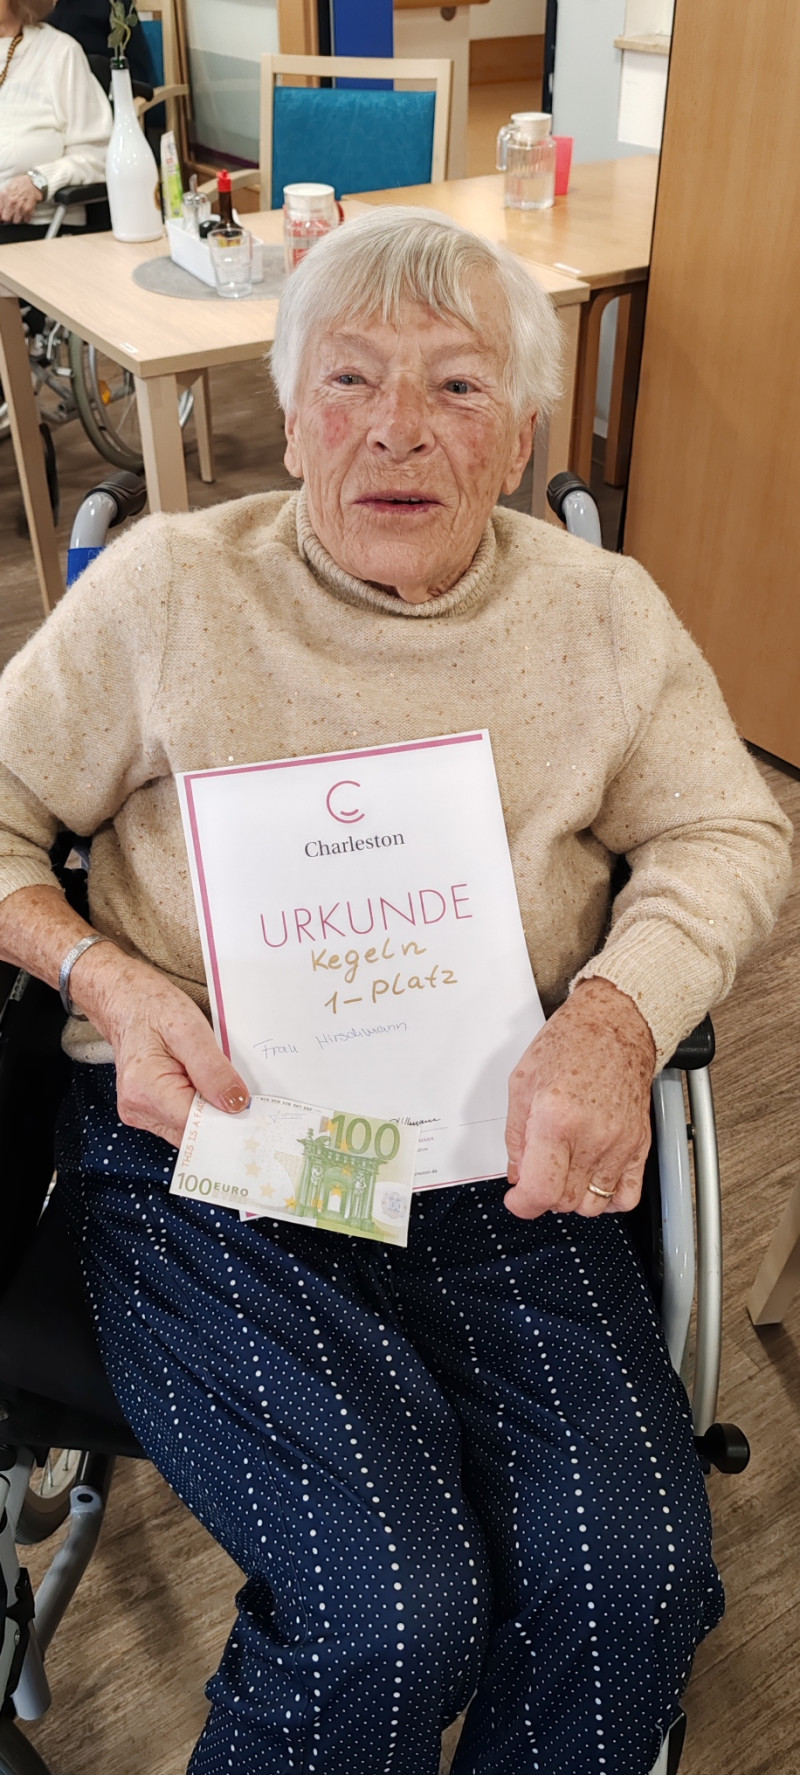 Charleston
URKUNDE
Kegeln
1-Platz
Frau Hirschmann
THIS IS A
100
100 EURO